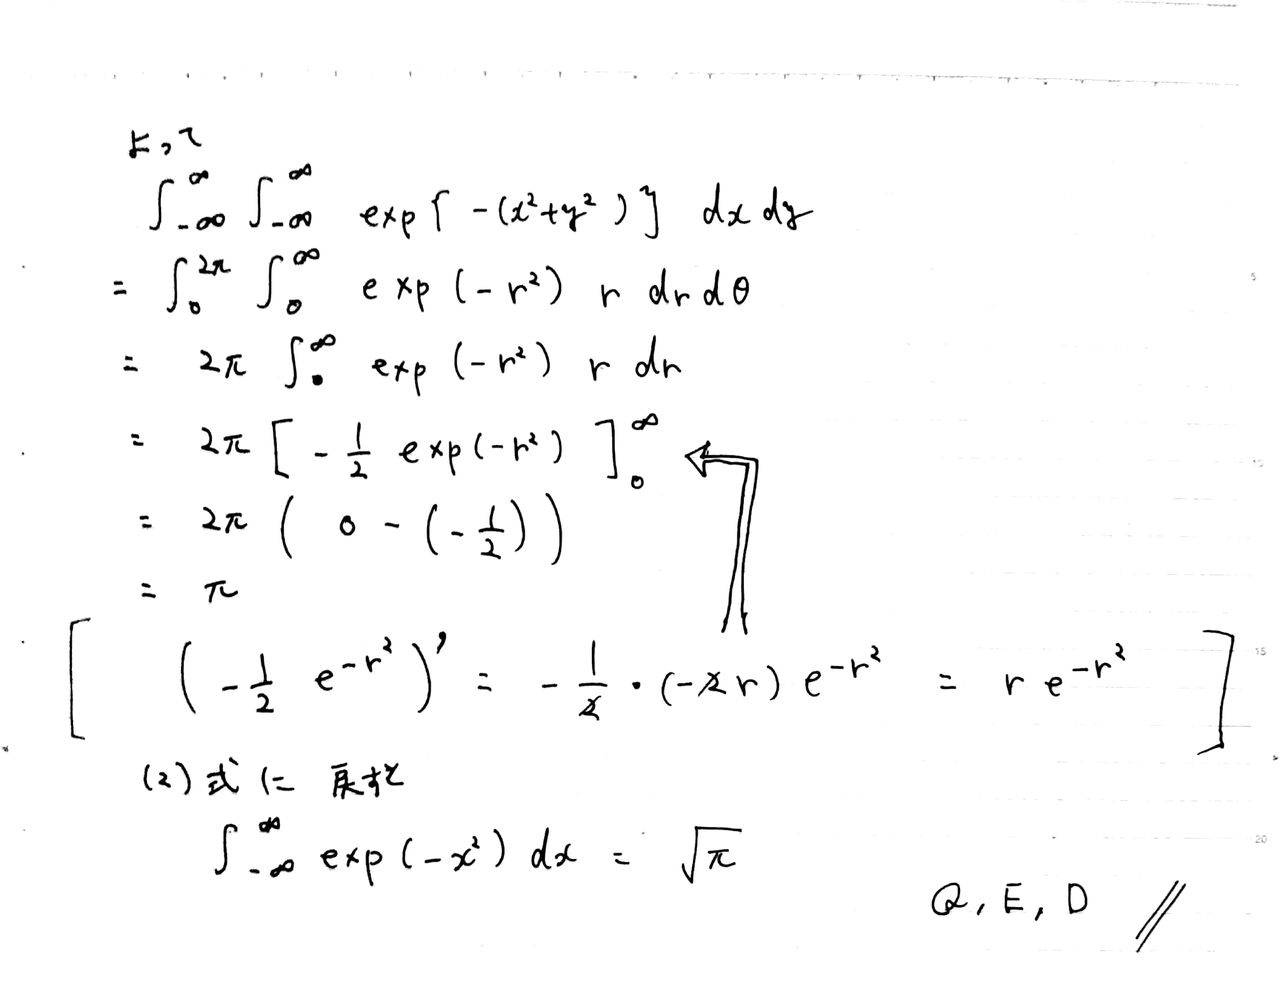 よって
∫_{-∞}^{∞} ∫_{-∞}^{∞} exp{ -(x²+y²) } dx dy
= ∫_0^{2π} ∫_0^{∞} exp(-r²) r dr dθ
= 2π ∫_0^{∞} exp(-r²) r dr
= 2π [ -1/2 exp(-r²) ]_0^{∞}
= 2π ( 0 - (-1/2) )
= π
[ ( -1/2 e^{-r²} )' = -1/2 · (-2r) e^{-r²} = r e^{-r²} ]
(2)式に戻すと
∫_{-∞}^{∞} exp(-x²) dx = √π
Q, E, D //
5
10
15
20